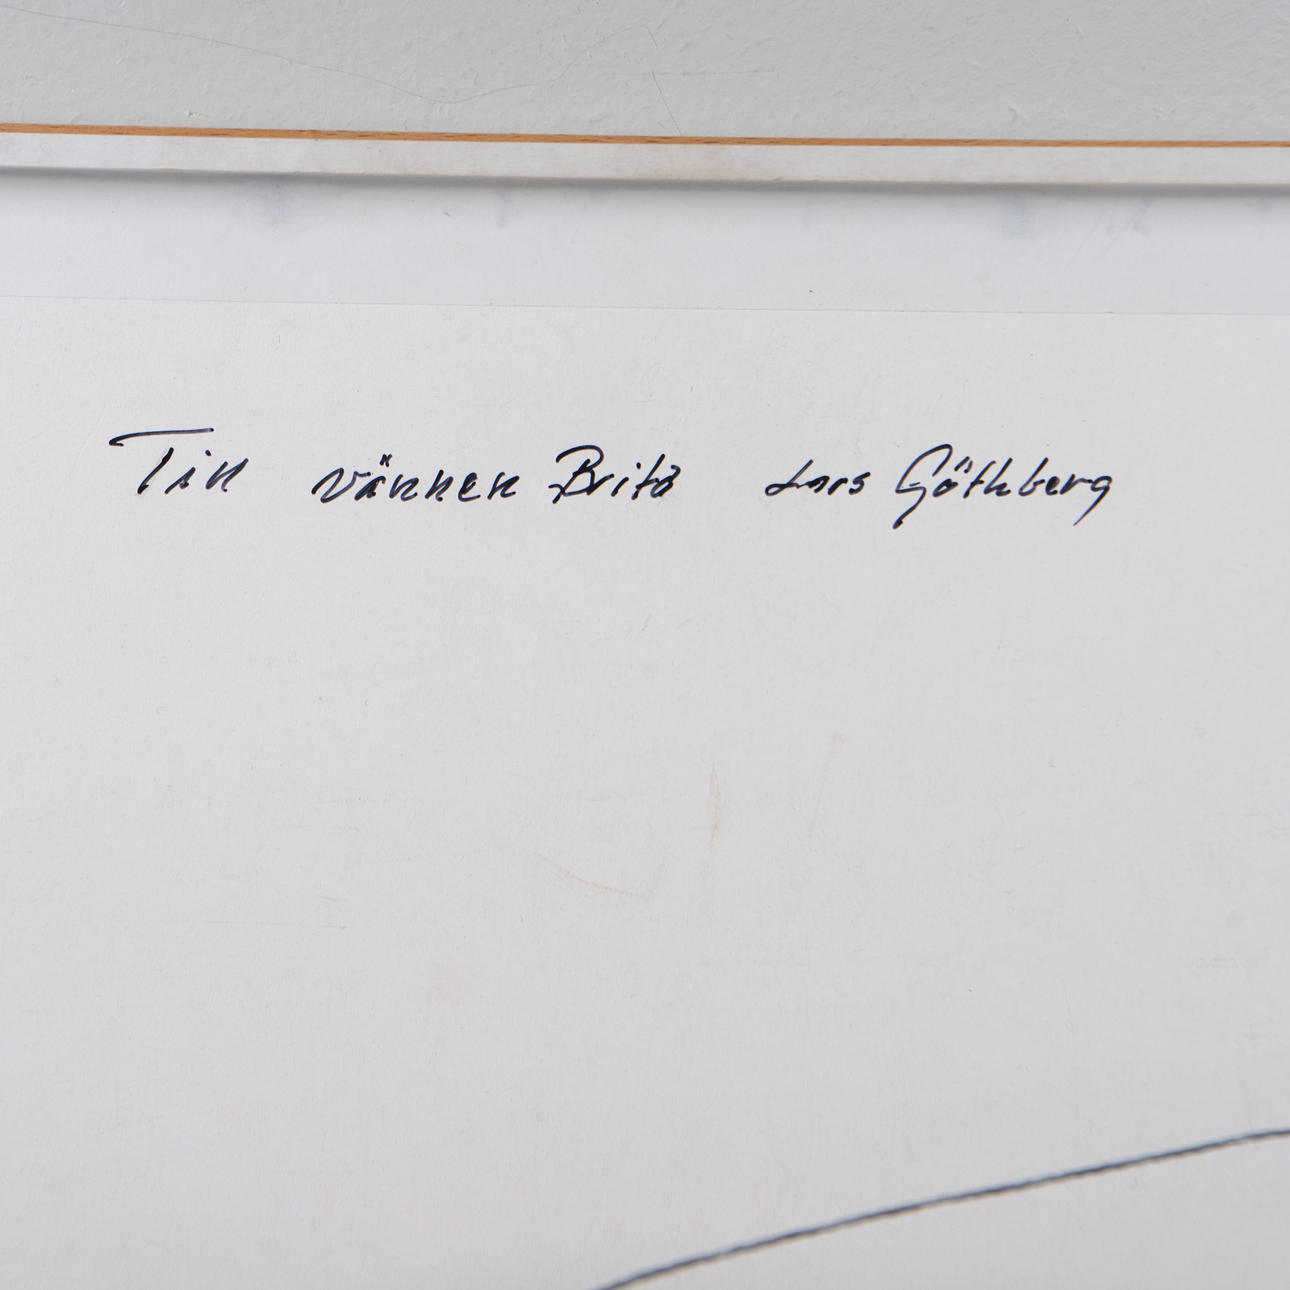 Till vännen Brita Lars Göthberg